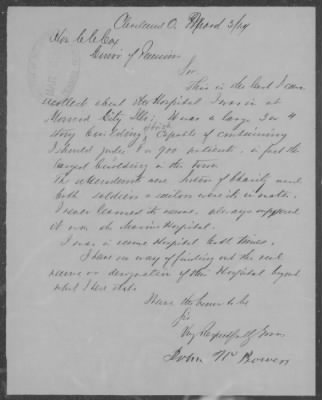 Cleveland O. 3/24
Hon C C Cox
of Pension
Sir
This is the best I can
recollect about the Hospital I was in at
Mound City Ills: It was a large 3 or 4
story building, capable of containing
I should judge 8 or 900 patients, in fact the
largest building in the town.
The attendants were Sisters of Charity and
both soldiers & sailors were its inmates.
I never learned its name, always supposed
it was the Marine Hospital.
I was in same Hospital both times.
I have no way of finding out the real
name or designation of this Hospital beyond
what I have stated.
I have the honor to be
Sir
Very Respectfully Yours
John W Bowen